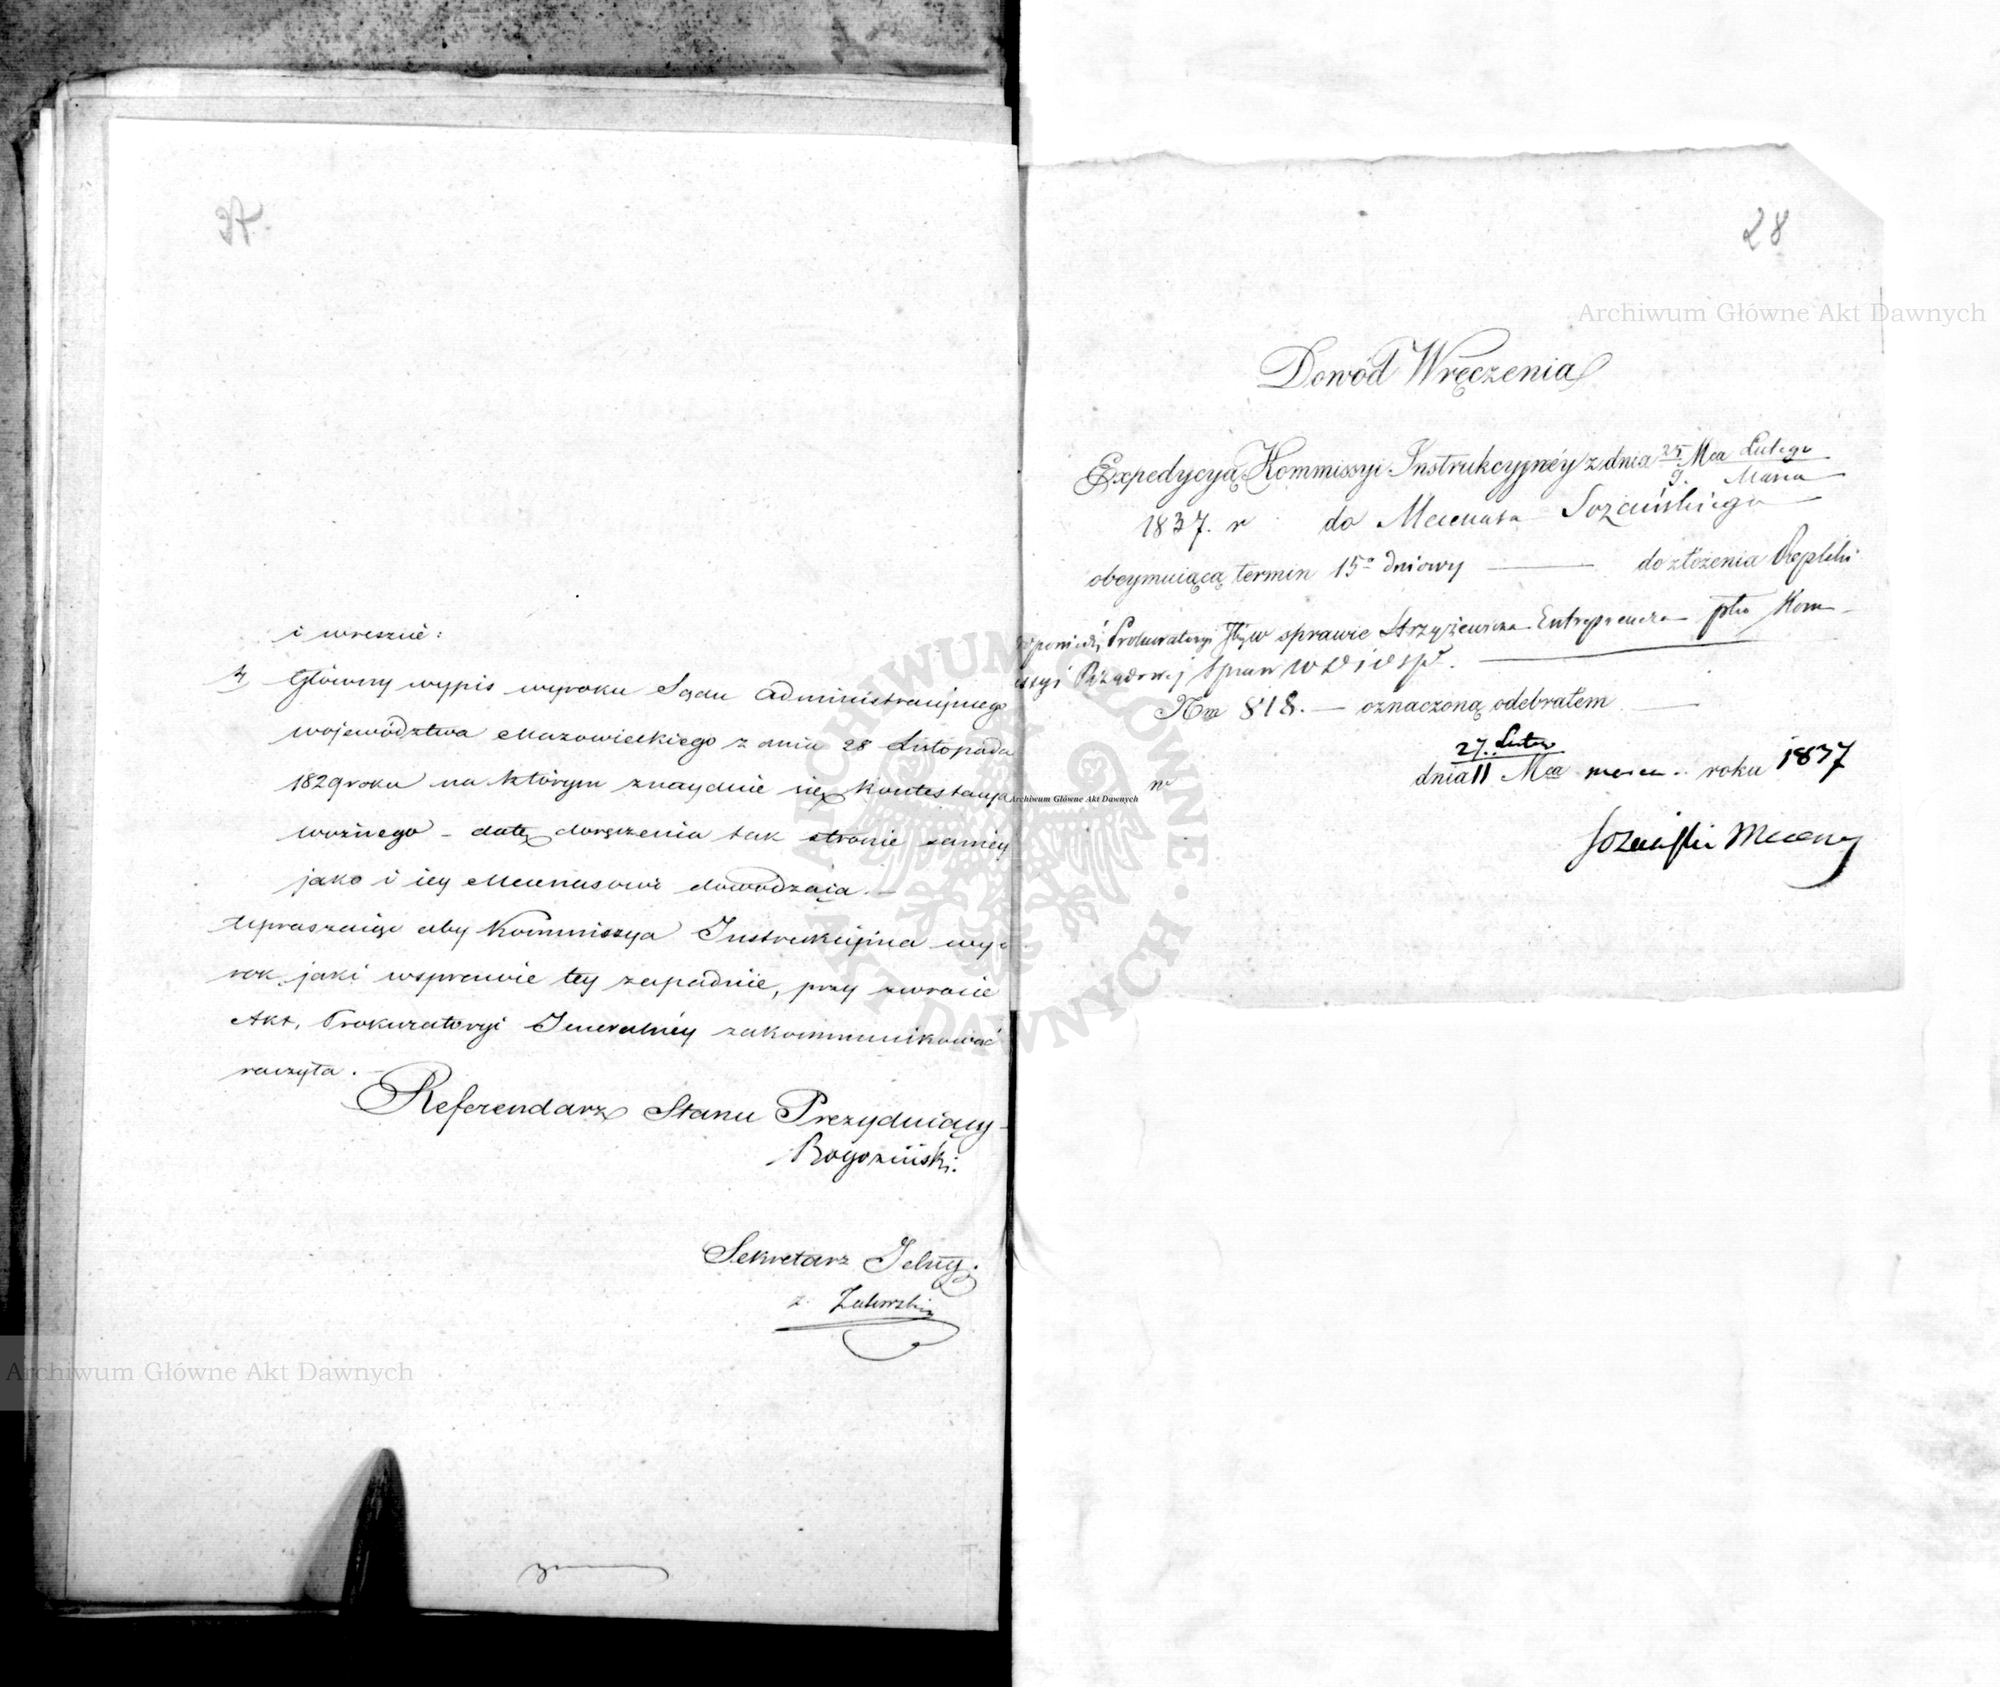 i wreszcie:
4, Główny wypis wyroku Sądu Administracyjnego
województwa Mazowieckiego z dnia 28 Listopada
1829 roku na którym znayduie się kontestacya
woźnego – datę doręczenia tak stronie samey
jako i iey Mecenasowi dowodząca. –
Upraszaiąc aby Kommissya Instrukcyina wy-
rok jaki wsprawie tey zapadnie, przy zwrocie
Akt, Prokuratoryi Jeneralnéy zakommunikować
raczyła. –
Referendarz Stanu Prezyduiący
Rogoziński.
Sekretarz Jelny.
z. Zalewski
28
Dowód Wręczenia
Expedycyą Kommissyi Instrukcyjnéy z dnia 25 Mca Lutego
9. Marca
1837. r do Mecenasa Sozańskiego
obeymuiącą termin 15o dniowy — do złożenia Repliki
Prokuratoryi w sprawie Strzyżewicza Entreprenera pko Kom-
issyi Rządowej Spraw W D i O P.
Nro 818. — oznaczoną odebrałem
27. Lutego
dnia 11 Mca marca roku 1837
Sozański Mecenas
Archiwum Główne Akt Dawnych
Archiwum Główne Akt Dawnych
Archiwum Główne Akt Dawnych
ARCHIWUM GŁÓWNE AKT DAWNYCH